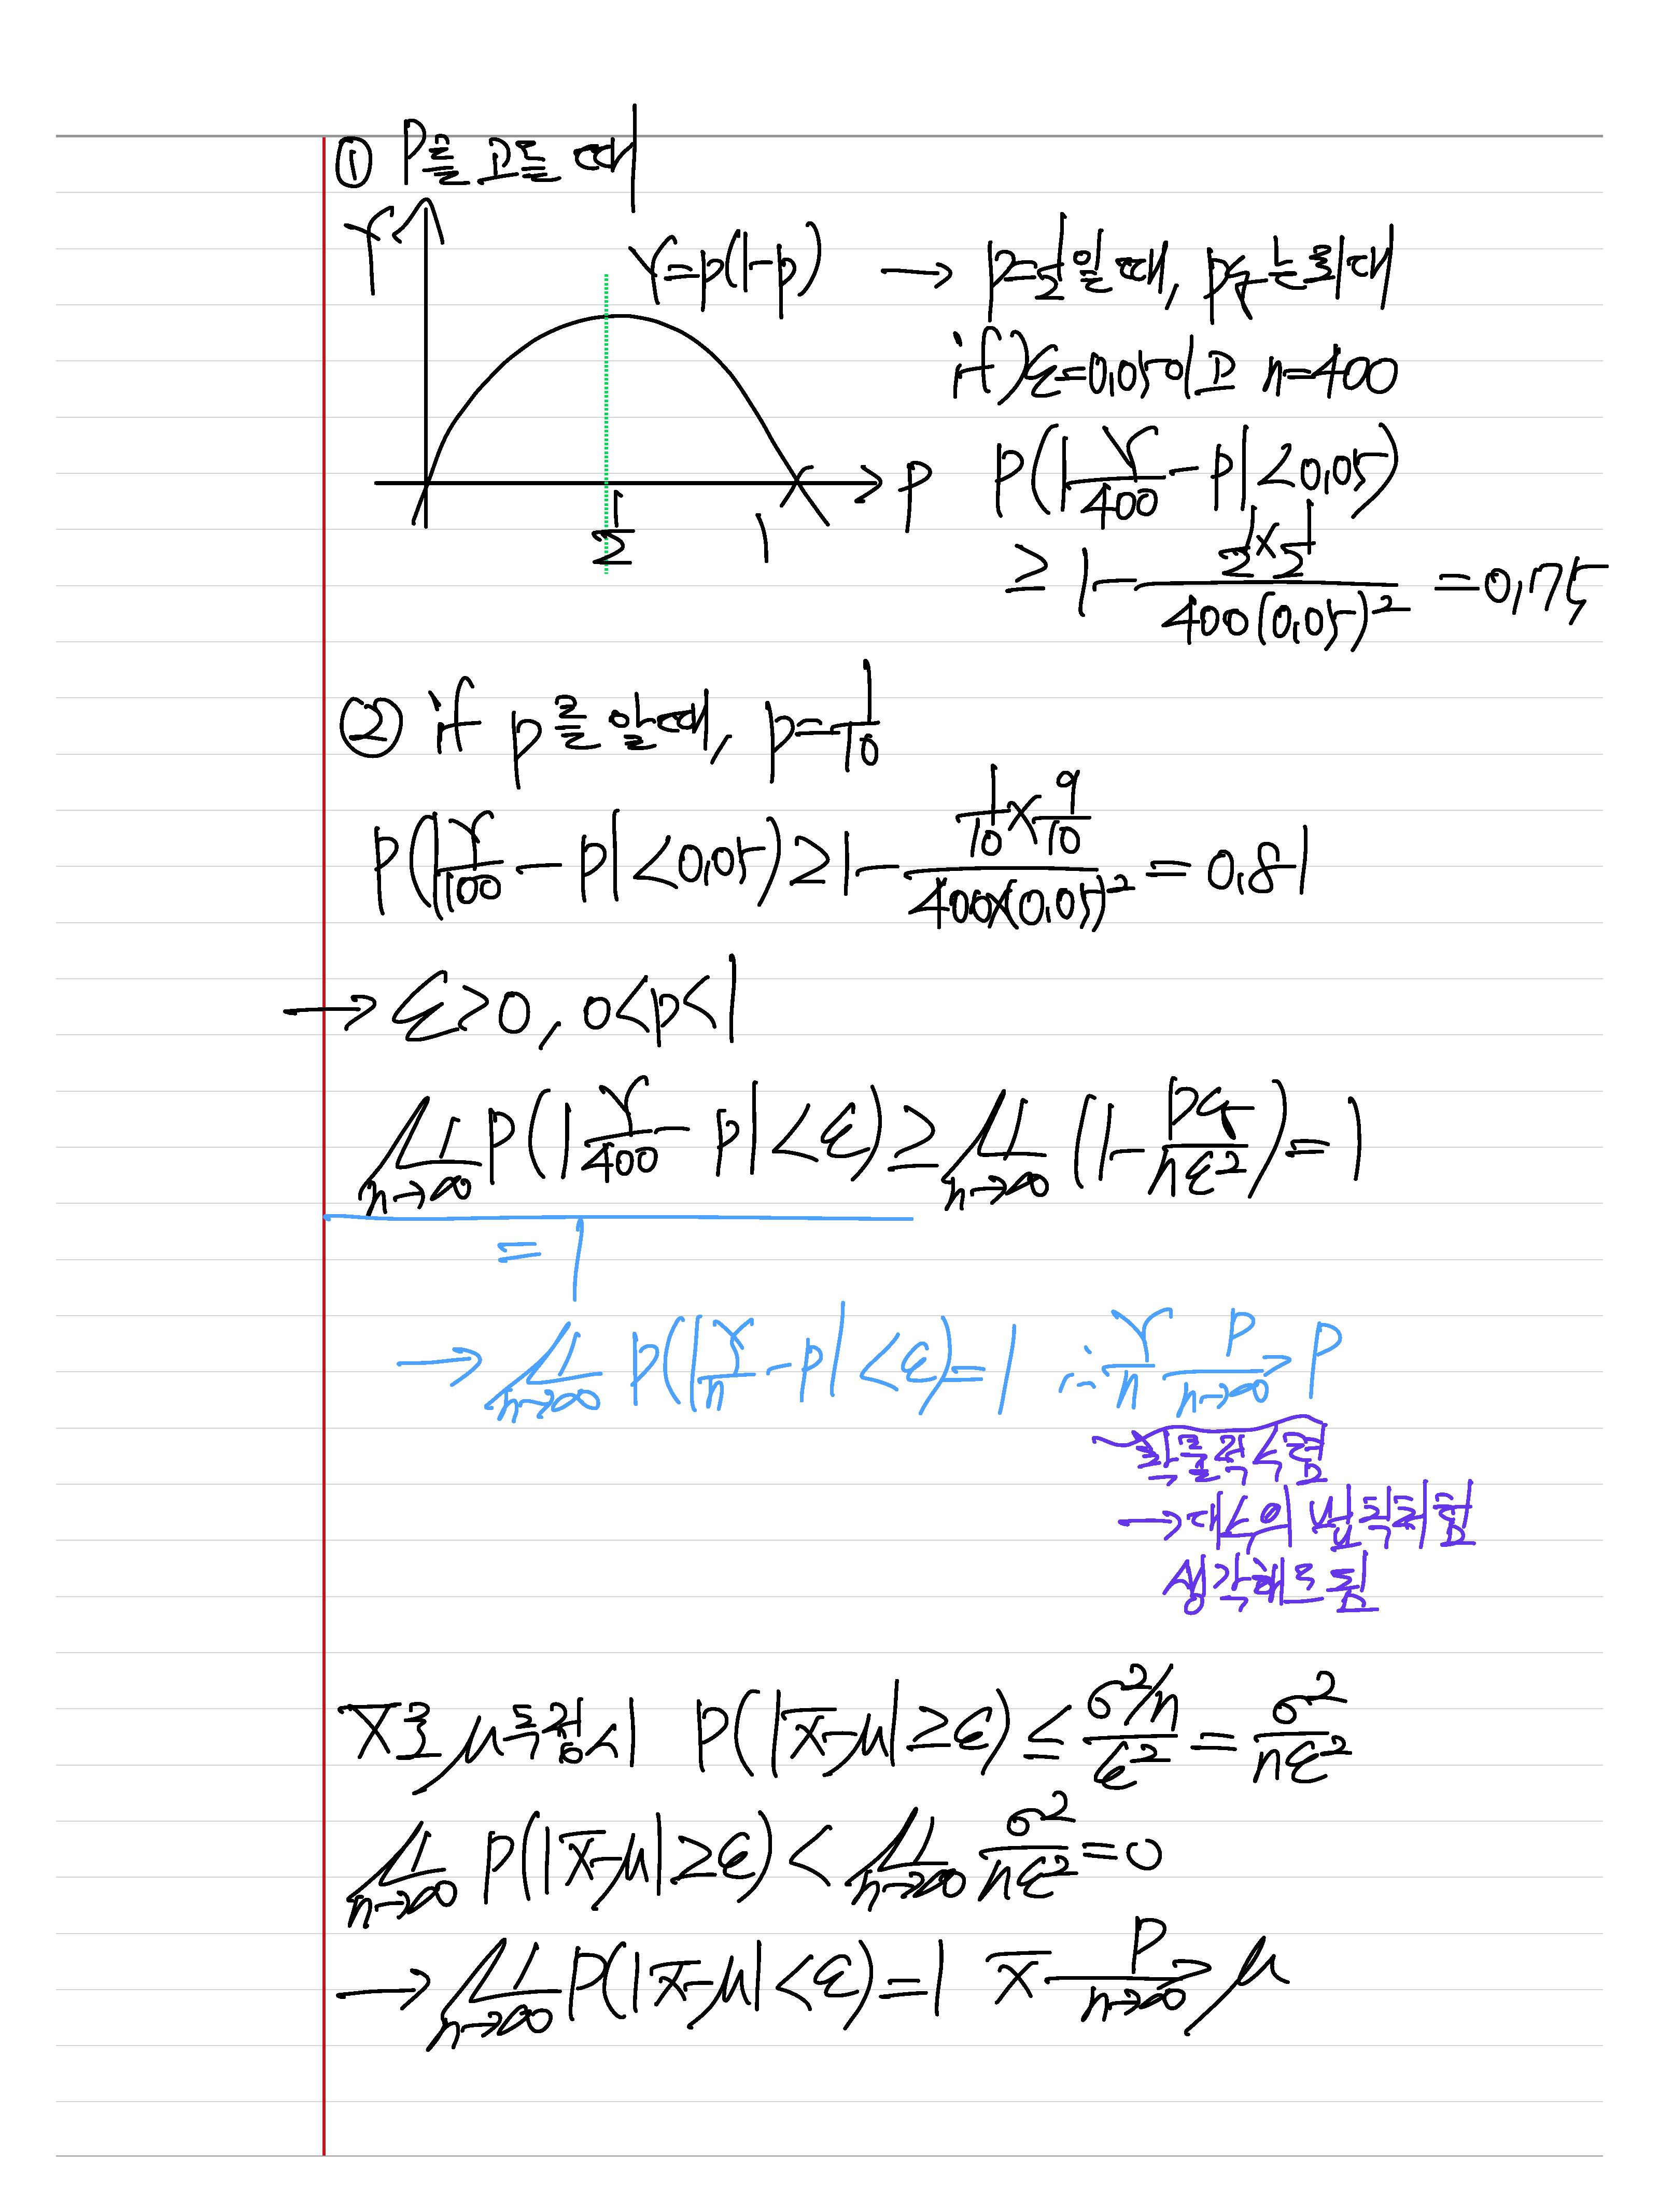 ① P를 고를 때
Y
Y=p(1-p) → p=1/2일 때, pq는 최대
if) ε=0.05이고 n=400
P(|Y/400 - p| < 0.05)
p
1/2
1
≥ 1 - (1/2 × 1/2)/(400(0.05)²) = 0.75
② if p를 알때, p=1/10
P(|Y/100 - p| < 0.05) ≥ 1 - (1/10 × 9/10)/(400×(0.05)²) = 0.81
→ ε>0, 0<p<1
lim n→∞ P(|Y/400 - p| < ε) ≥ lim n→∞ (1 - pq/nε²) = 1
= 1
→ lim n→∞ P(|Y/n - p| < ε) = 1 ∴ Y/n P→ n→∞ P
확률적수렴
→ 대수의 법칙처럼
생각해도됨
x̄로 μ추정시 P(|x̄-μ| ≥ ε) ≤ (σ²/n)/ε² = σ²/nε²
lim n→∞ P(|x̄-μ| ≥ ε) < lim n→∞ σ²/nε² = 0
→ lim n→∞ P(|x̄-μ| < ε) = 1 x̄ P→ n→∞ μ